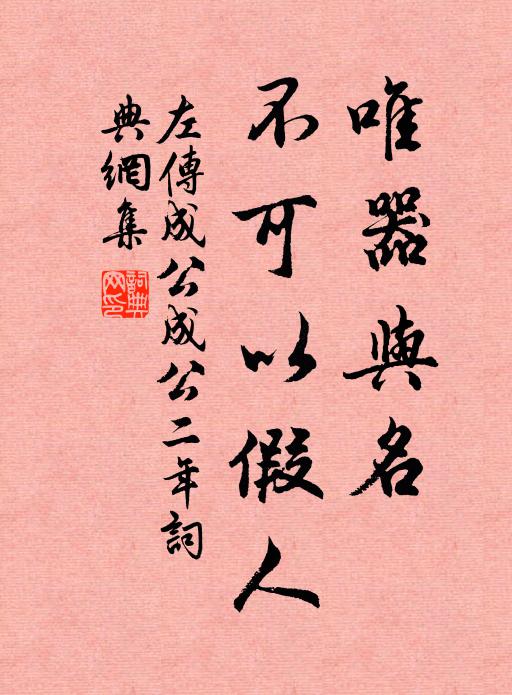 唯器與名
不可以假人
左傳成公成公二年詞
典網集
詞典
网印